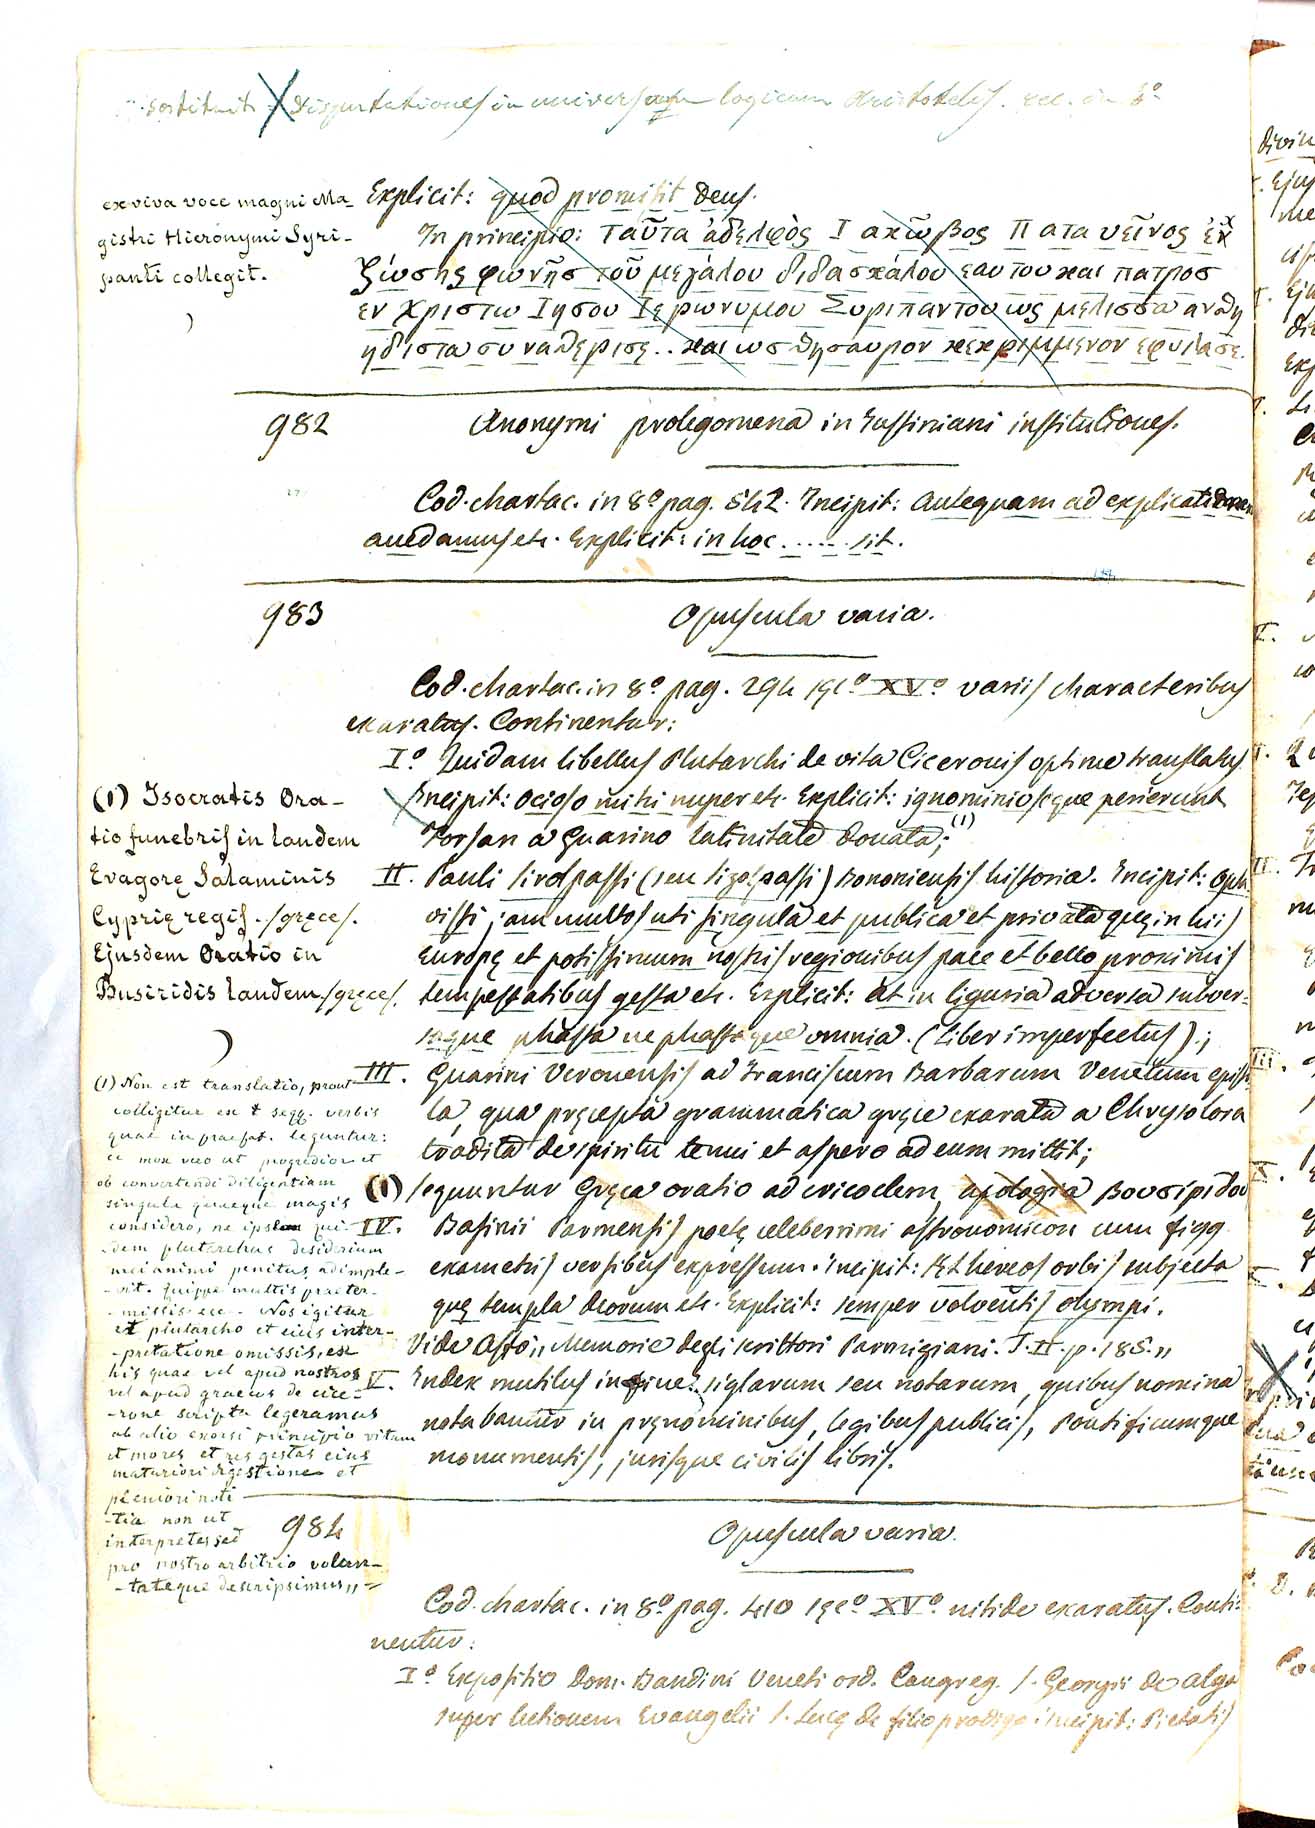 Disputationes in universam logicam Aristotelis. etc. in 8º
ex viva voce magni Ma-
gistri Hieronymi Syri-
panti collegit.
Explicit: quod promisit Deus.
In principio: Ταῦτα ἀδελφὸς Ιακῶβος Παταυεῖνος ἐκ
ζώσης φωνῆς τοῦ μεγάλου διδασκάλου εαυτου και πατρος
εν Χριστω Ιησου Ιερωνυμου Συριπαντου ως μελισσα ανθη
ηδιστα συναθερισε.. και ως θησαυρον κεκριμμενον εφυλασε.
982
Anonymi prolegomena in Justiniani institutiones.
Cod. chartac. in 8º pag. 542. Incipit: Antequam ad explicationem
audamus etc. Explicit: in hoc ...... sit.
983
Opuscula varia.
Cod. chartac. in 8º pag. 294 sęcº XVº variis characteribus
exaratus. Continentur:
Iº Quidam libellus Plutarchi de vita Ciceronis optime translatus
Incipit: Ocioso mihi nuper etc. Explicit: ignominioseque perierunt
Forsan a Guarino latinitate donata; (1)
(1) Isocratis Ora-
tio funebris in laudem
Evagorę Salaminis
Cyprię regis. /gręce/.
Ejusdem Oratio in
Busiridis laudem /gręce/.
II. Pauli Sivolpassi (seu Sizolpassi) Bononiensis historia. Incipit: Opta-
vissi jam multos uti singula et publica et privata quę in his
Europę et potissimum nostris regionibus pace et bello proximis
tempestatibus gesta etc. Explicit: At in liguria adversa subver-
saque phasta nephastaque omnia. (Liber imperfectus).;
III. Guarini Veronensis ad Franciscum Barbarum Venetum episto-
la, qua pręcepta grammatica gręce exarata a Chrysolora
tradita de spiritu tenui et aspero ad eum mittit;
(1) Sequuntur Gręca oratio ad nicoclem, apologia Βουσιριδου
IV. Basinii Parmensis poetę celeberrimi astronomicon cum figg.
exametris versibus expressum. Incipit: Ęthereos orbis subjecta
quę templa deorum etc. Explicit: semper volventis olympi.
Vide Affò „ Memorie degli scrittori Parmigiani. T. II. p. 185. „
V. Index mutilus in fine: siglarum seu notarum, quibus nomina
notabantur in pręnominibus, legibus publicis, Pontificumque
monumentis, jurisque civilis libris.
(1) Non est translatio, prout
colligitur ex segg. verbis
quae in praefat. leguntur:
ob convertendi diligentiam
singula quaeque magis
considero, ne ipsum qui-
dem plutarchus desiderium
mei animi penitus adimple-
-vit. quippe multis praeter-
-missis etc. Nos igitur
et plutarcho et eius inter-
-pretatione omissis, ex
his quae vel apud nostros
vel apud graecos de cice-
-rone scripta legeramus
ab alio exorsi principio vitam
et mores et res gestas eius
maturiori digestione et
pleniori noti
-tia non ut
interpretes sed
pro nostro arbitrio volun-
-tateque descripsimus „
984
Opuscula varia.
Cod. chartac. in 8º pag. 410 sęcº XVº nitide exaratus. Conti-
nentur:
Iº Expositio Dom. Bandini Veneti ord. Congreg. S. Georgii de Alga
super lectionem Evangelii S. Lucę de filio prodigo. Incipit: Pietatis